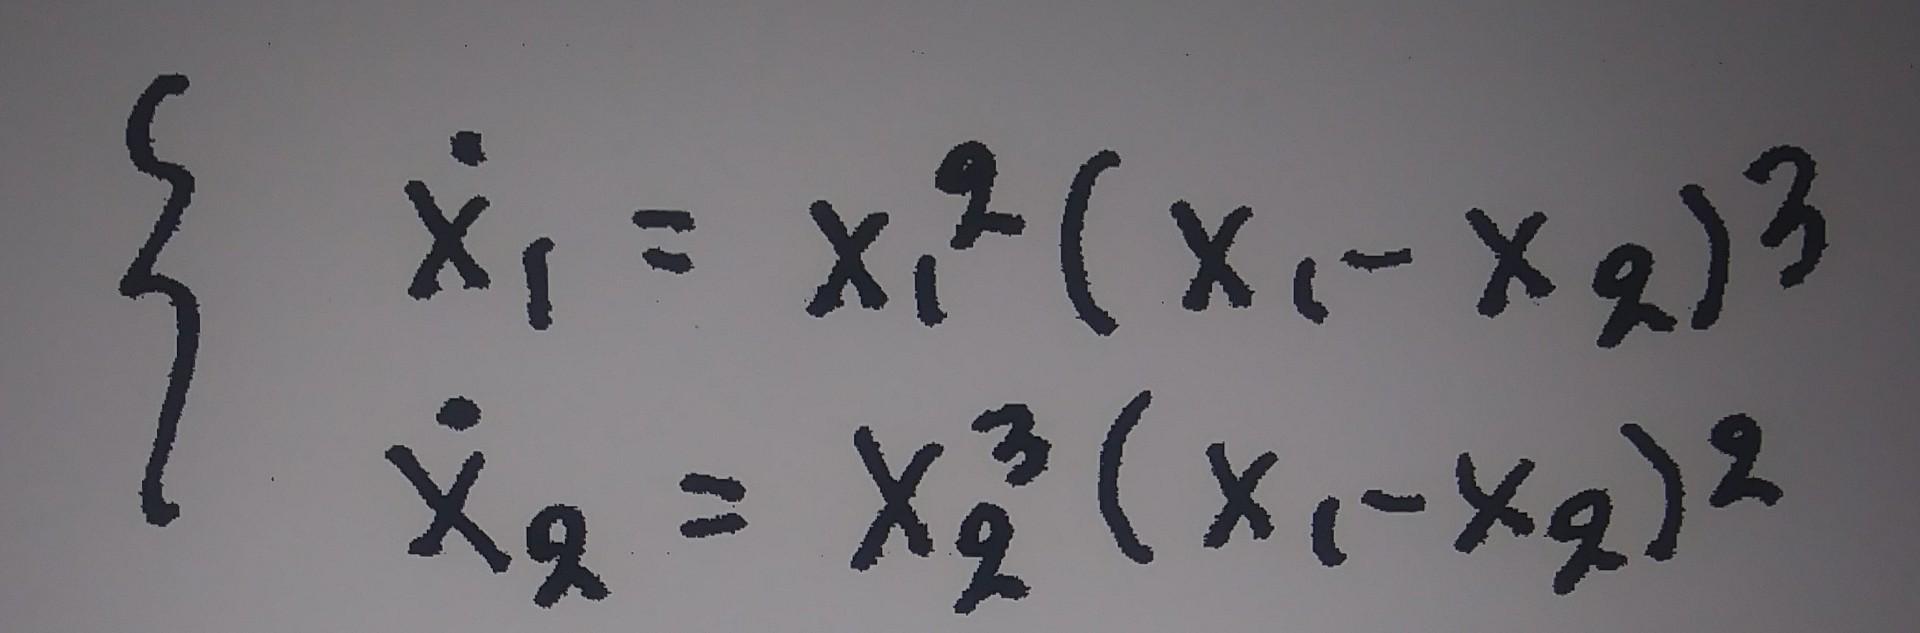 ẋ₁ = x₁²(x₁-x₂)³
ẋ₂ = x₂³(x₁-x₂)²